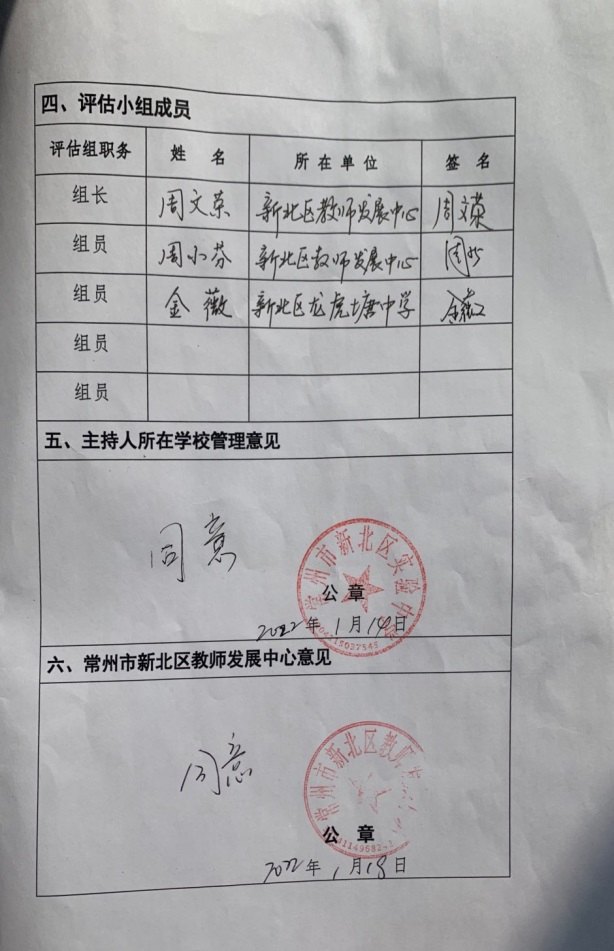 四、评估小组成员
评估组职务 姓 名 所在单位 签 名
组长 周文荣 新北区教师发展中心 周文荣
组员 周小芬 新北区教师发展中心
组员 金薇 新北区龙虎塘中学 金薇
组员
组员
五、主持人所在学校管理意见
同意
常州市新北区实验中学
公 章
2022年1月14日
六、常州市新北区教师发展中心意见
同意
常州市新北区教师
公 章
2022年1月18日